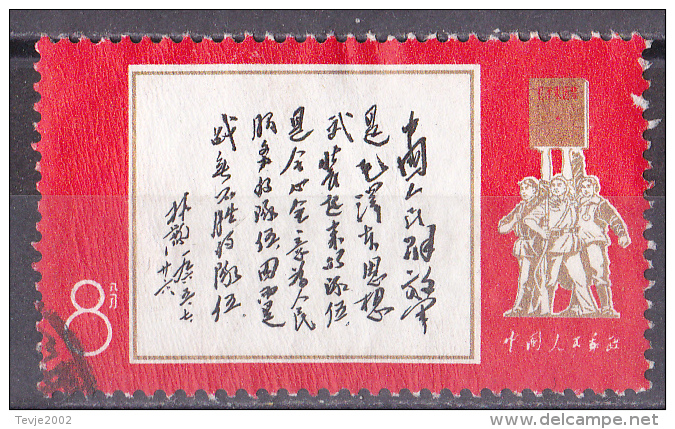 中国人民解放军
是毛泽东思想
武装起来的队伍，
是全心全意为人民
服务的队伍，因而是
战无不胜的队伍。
林彪 一九六五、七
廿六
8
八分
中国人民邮政
Tevje2002
www.delcampe.net